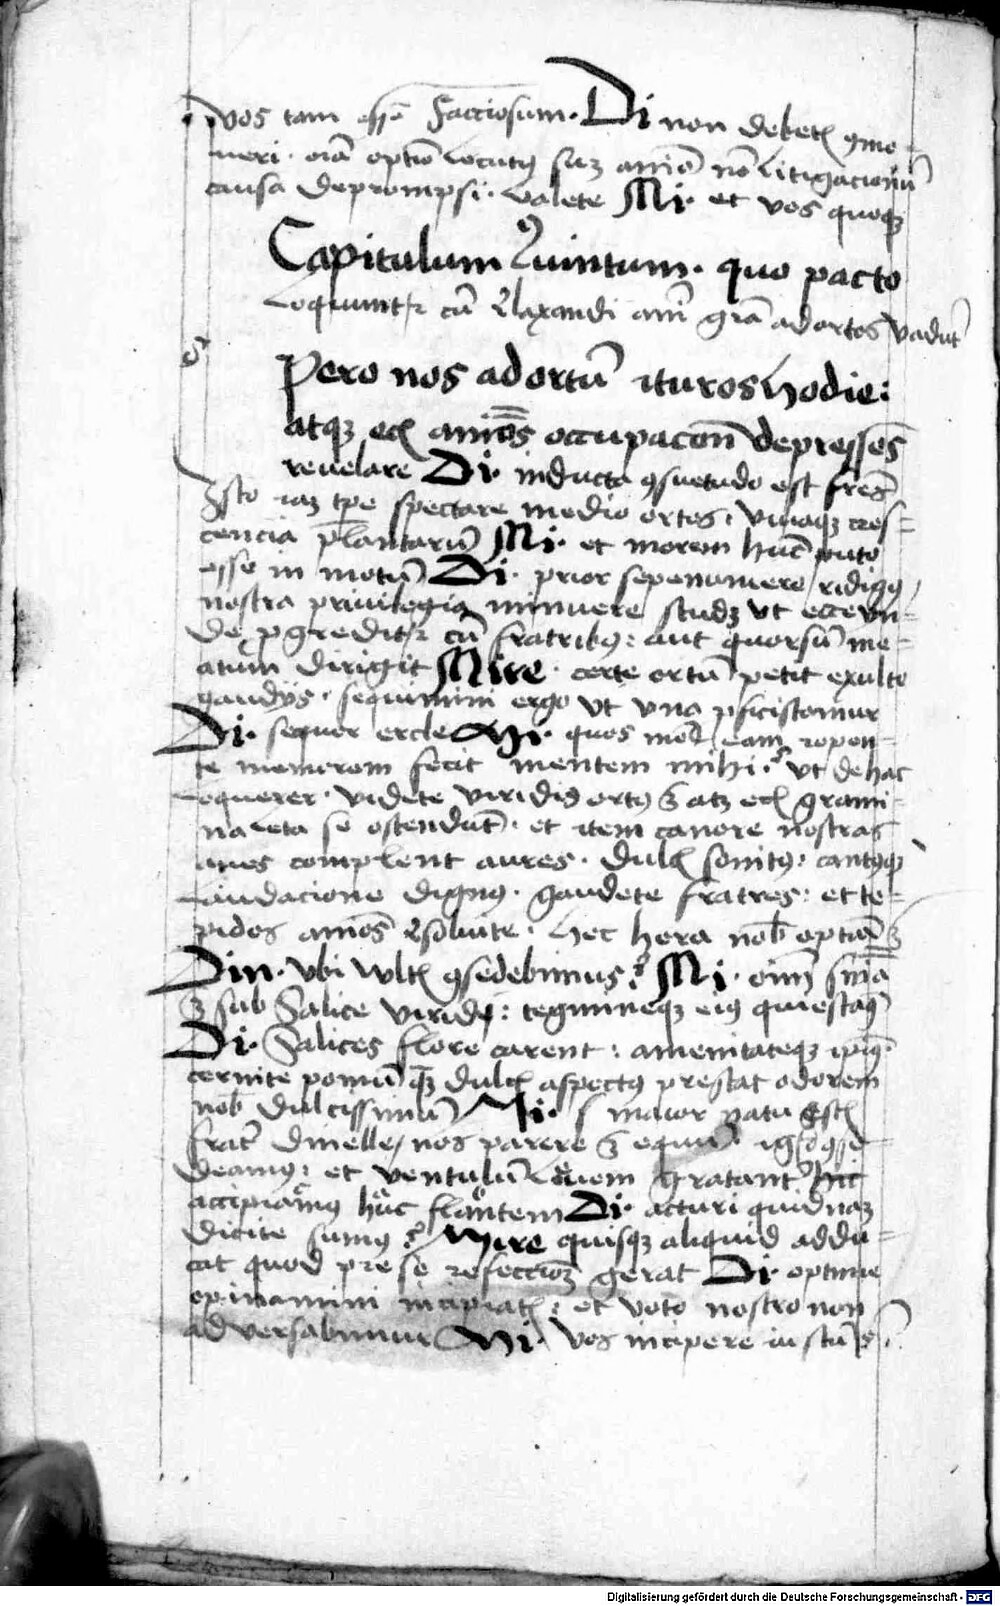 vos tam esse facciosum. Di non debetis gmo-
veri. oia optio locutus suz animo no litigacionu
causa deprompsi. valete Mi. et vos quoqz
Capitulum Quintum. quo pacto
loquuntr cu rlaxandi ami gra ad ortos vadut
Spero nos ad ortu ituros hodie:
atqz eciam amicos occupacon depressos
revelare Di. inducta gsuetudo est fres
Isto iaz tpe spectare medio ortos. vinaqz cres=
cencia plantaru Mi. et morem huc puto
esse in motu Di. prior sepenumero ridigus
nostra privilegia minuere studz ut ecce un-
de pgreditr cu fratribus: aut quorsu me=
atum dirigit Mire. certe ortu petit exulto
gaudiis. sequimini ergo ut una pficiscamur
Di. sequor ercle Mi. quos modo eam repen=
te memorem fecit mentem mihi. ut de hac
loquerer. videte viridis ortus e atz eciam grami=
na leta se ostendut. et item canore nostras
aues complent aures. dulcis sonitus: cantusqz
laudacione dignus. gaudete fratres: et te=
pidos amos rsoluite. hec hora nob optia e
Din. vbi vultis gsedebimus? Mi. oim snia
e sub Salice viridi: tegmineqz eius quiescamus
Di. Salices flore carent: amenitateqz ipius
cernite pomu qz dulcis aspectus prestat odorem
nob dulcissimu Mi. maior natu estis
frater dinelle, nos parere e equu.
deamus: et ventulu levem gratanter hic
accipiamus huc flantem Di. acturi quidnaz
dicite sumus? Mire quisqz aliquid addu=
cat quod pre se refeccioz gerat Di. optime
opinamini incipiatis: et voto nostro non
adversabimur Mi. vos incipere iustu e.
Digitalisierung gefördert durch die Deutsche Forschungsgemeinschaft - DFG